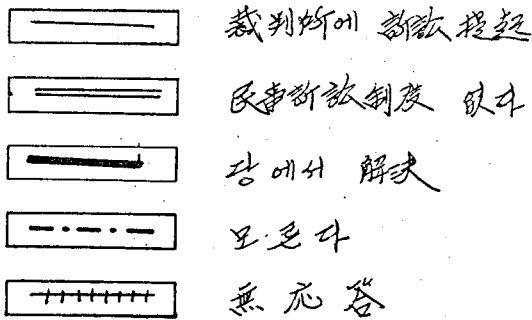 裁判所에 訴訟提起
民事訴訟制度 없다
당에서 解決
모른다
無応答